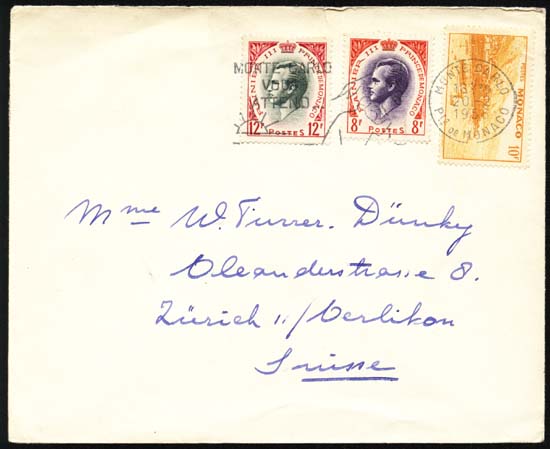 RAINIER III PRINCE DE MONACO
12F POSTES 12F
RAINIER III PRINCE DE MONACO
8F POSTES 8F
POSTES
MONACO
10F
MONTE-CARLO
VOUS
ATTEND
MONTE-CARLO
PTÉ DE MONACO
Mme W. Furrer. Dünky
Oleanderstrasse 8.
Zürich 11/Oerlikon
Suisse